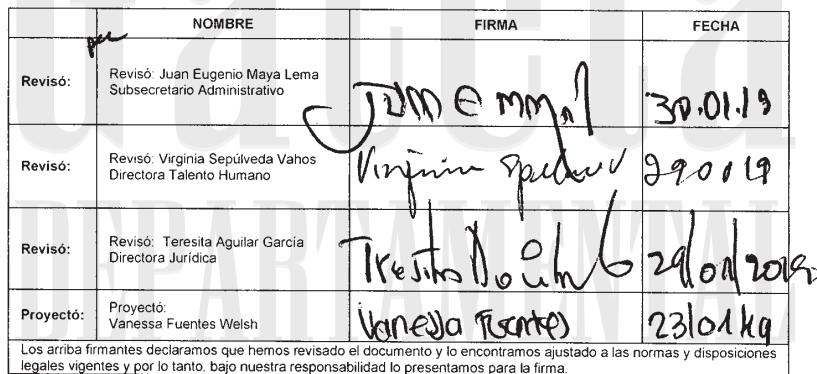 NOMBRE FIRMA FECHA
Revisó: Revisó: Juan Eugenio Maya Lema
Subsecretario Administrativo 30.01.19
Revisó: Revisó: Virginia Sepúlveda Vahos
Directora Talento Humano Virginia 290119
Revisó: Revisó: Teresita Aguilar García
Directora Jurídica Teresita 29/01/2019
Proyectó: Proyectó:
Vanessa Fuentes Welsh Vanessa Fuentes 23/01/19
Los arriba firmantes declaramos que hemos revisado el documento y lo encontramos ajustado a las normas y disposiciones
legales vigentes y por lo tanto, bajo nuestra responsabilidad lo presentamos para la firma.
DEPARTAMENTAL